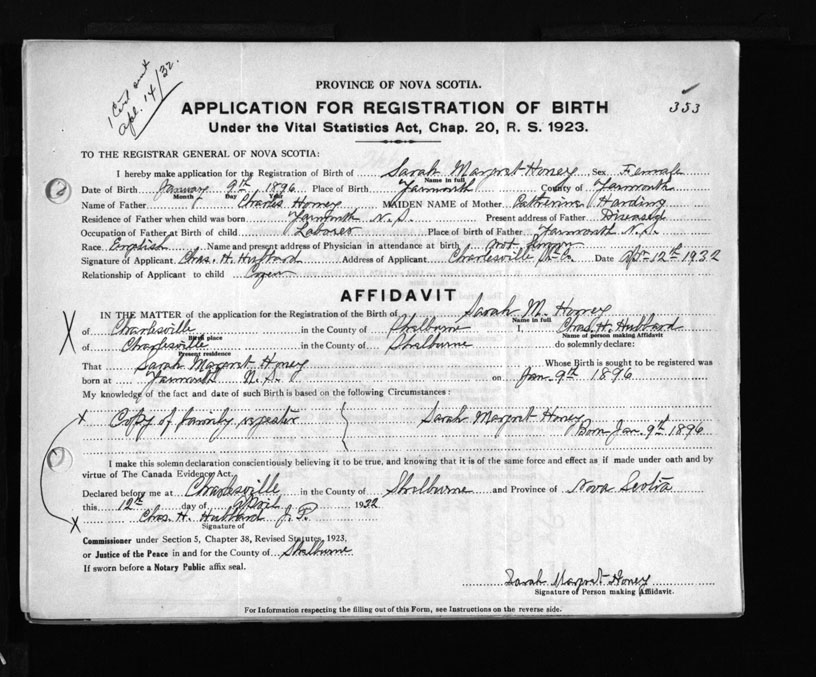 1 Cert sent
Apl. 14/32.
PROVINCE OF NOVA SCOTIA.
APPLICATION FOR REGISTRATION OF BIRTH
353
Under the Vital Statistics Act, Chap. 20, R. S. 1923.
TO THE REGISTRAR GENERAL OF NOVA SCOTIA:
I hereby make application for the Registration of Birth of Sarah Margret Honey Sex Female
Name in full
Date of Birth January 9th 1896 Place of Birth Yarmouth County of Yarmouth
Month Day Year
Name of Father Charles Honey MAIDEN NAME of Mother Catherine Harding
Residence of Father when child was born Yarmouth N.S. Present address of Father Diseased
Occupation of Father at Birth of child Laborer Place of birth of Father Yarmouth N.S.
Race English Name and present address of Physician in attendance at birth not known
Signature of Applicant Chas. H. Hubbard Address of Applicant Charlesville Date Apr 12th 1932
Relationship of Applicant to child
AFFIDAVIT
IN THE MATTER of the application for the Registration of the Birth of Sarah M. Honey
Name in full
of Charlesville in the County of Shelburne I, Chas. H. Hubbard
Birth place Name of person making Affidavit
of Charlesville in the County of Shelburne do solemnly declare:
Present residence
That Sarah Margret Honey Whose Birth is sought to be registered was
born at Yarmouth N.S. on Jan. 9th 1896
My knowledge of the fact and date of such Birth is based on the following Circumstances:
x Copy of family Sarah Margret Honey
Born Jan. 9th 1896
I make this solemn declaration conscientiously believing it to be true, and knowing that it is of the same force and effect as if made under oath and by
virtue of The Canada Evidence Act.
Declared before me at Charlesville in the County of Shelburne and Province of Nova Scotia
this 12th day of April 1932
x Chas. H. Hubbard J. P.
Signature of
Commissioner under Section 5, Chapter 38, Revised Statutes, 1923,
or Justice of the Peace in and for the County of Shelburne
If sworn before a Notary Public affix seal.
Sarah Margret Honey
Signature of Person making Affidavit.
For Information respecting the filling out of this Form, see Instructions on the reverse side.